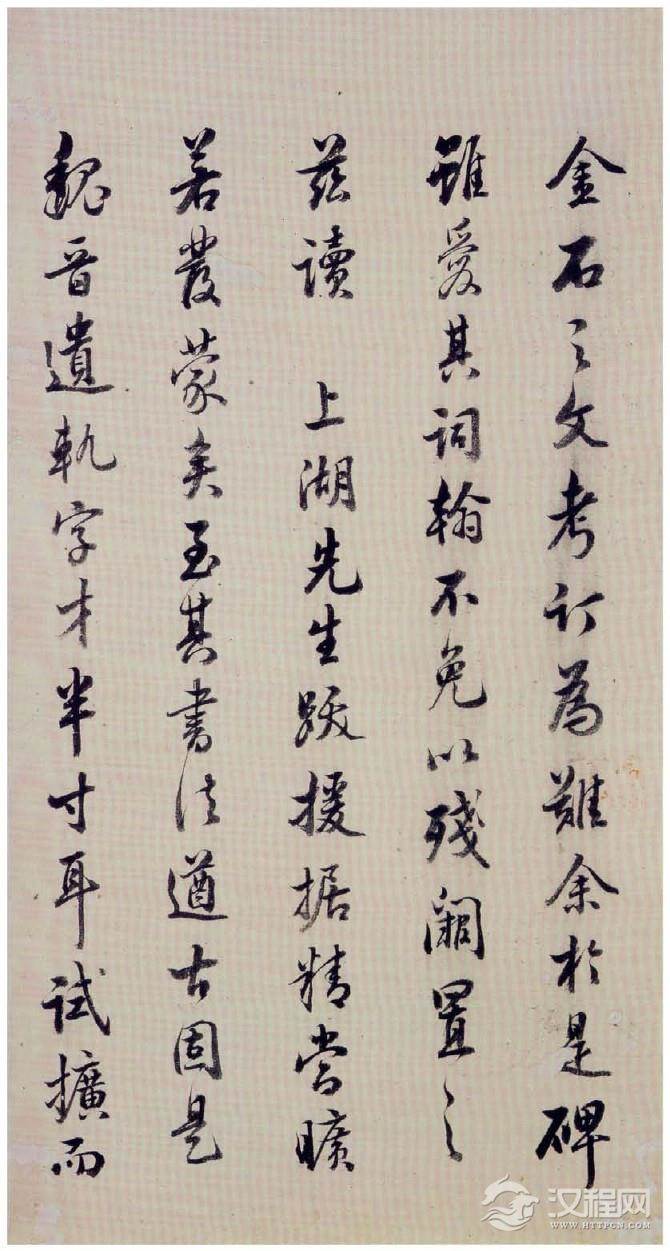 金石之文考订為難余於是碑
雖愛其詞翰不免以殘闕置之
茲讀 上湖先生跋援据精當曠
若發蒙矣至其書法遒古固是
魏晉遺軌字才半寸耳試擴而
汉程网
WWW.HTTPCN.COM